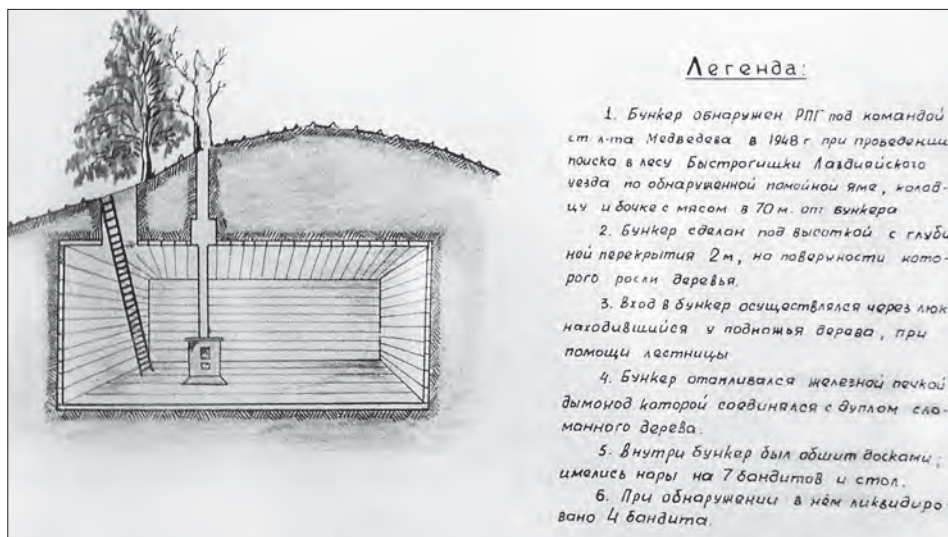 Легенда:
1. Бункер обнаружен РПГ под командой
ст л-та Медведева в 1948 г при проведении
поиска в лесу Быстрогишки Лаздияйского
уезда по обнаруженной помойной яме, колод-
цу и бочке с мясом в 70 м. от бункера
2. Бункер сделан под высоткой с глуби-
ной перекрытия 2 м, на поверхности кото-
рого росли деревья.
3. Вход в бункер осуществлялся через люк
находившийся у подножья дерева, при
помощи лестницы
4. Бункер отапливался железной печкой
дымоход которой соединялся с дуплом сло-
манного дерева.
5. Внутри бункер был обшит досками,
имелись нары на 7 бандитов и стол.
6. При обнаружении в нём ликвидиро-
вано 4 бандита.